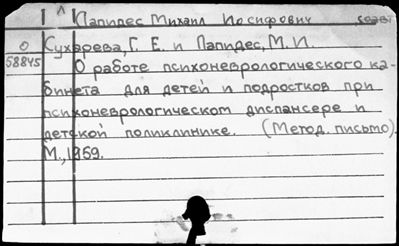 Лапидес Михаил Иосифович соавт
О Сухарева, Г. Е. и Лапидес, М. И.
58845 О работе психоневрологического ка-
бинета для детей и подростков при
психоневрологическом диспансере и
детской поликлинике. (Метод. письмо).
М., 1959.